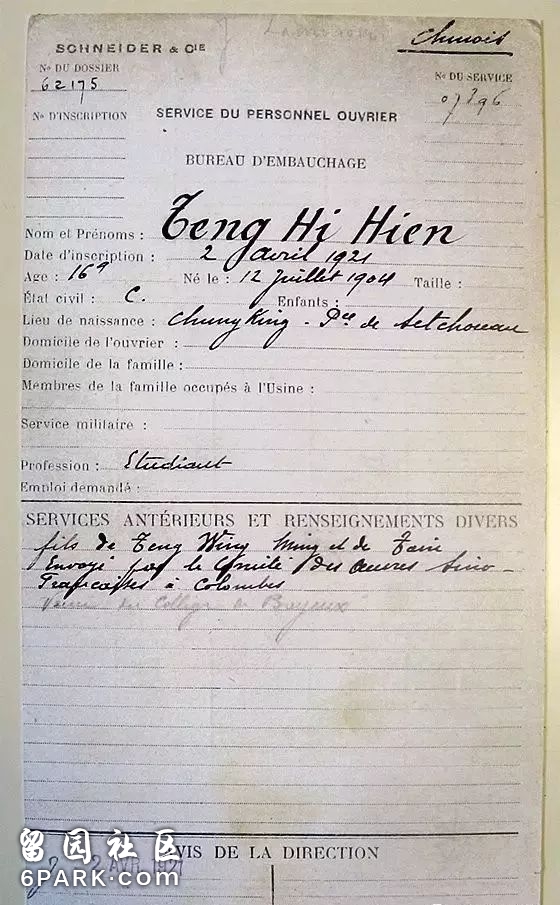 Chinois
SCHNEIDER & CIE
No DU DOSSIER
62175
No DU SERVICE
07396
No D'INSCRIPTION
SERVICE DU PERSONNEL OUVRIER
BUREAU D'EMBAUCHAGE
Nom et Prénoms : Teng Hi Hien
Date d'inscription : 2 avril 1921
Age : 16a Né le : 12 Juillet 1904 Taille :
État civil : C. Enfants :
Lieu de naissance : Chung King - Pce de Setchouan
Domicile de l'ouvrier :
Domicile de la famille :
Membres de la famille occupés à l'Usine :
Service militaire :
Profession : Etudiant
Emploi demandé :
SERVICES ANTÉRIEURS ET RENSEIGNEMENTS DIVERS
fils de Teng Wing Ming et de Tain
Envoyé par le Comité des Œuvres Sino-
Françaises à Colombes
Venu du Collège de Bayeux
AVIS DE LA DIRECTION
2 AVR 1921
留园社区
6PARK.com